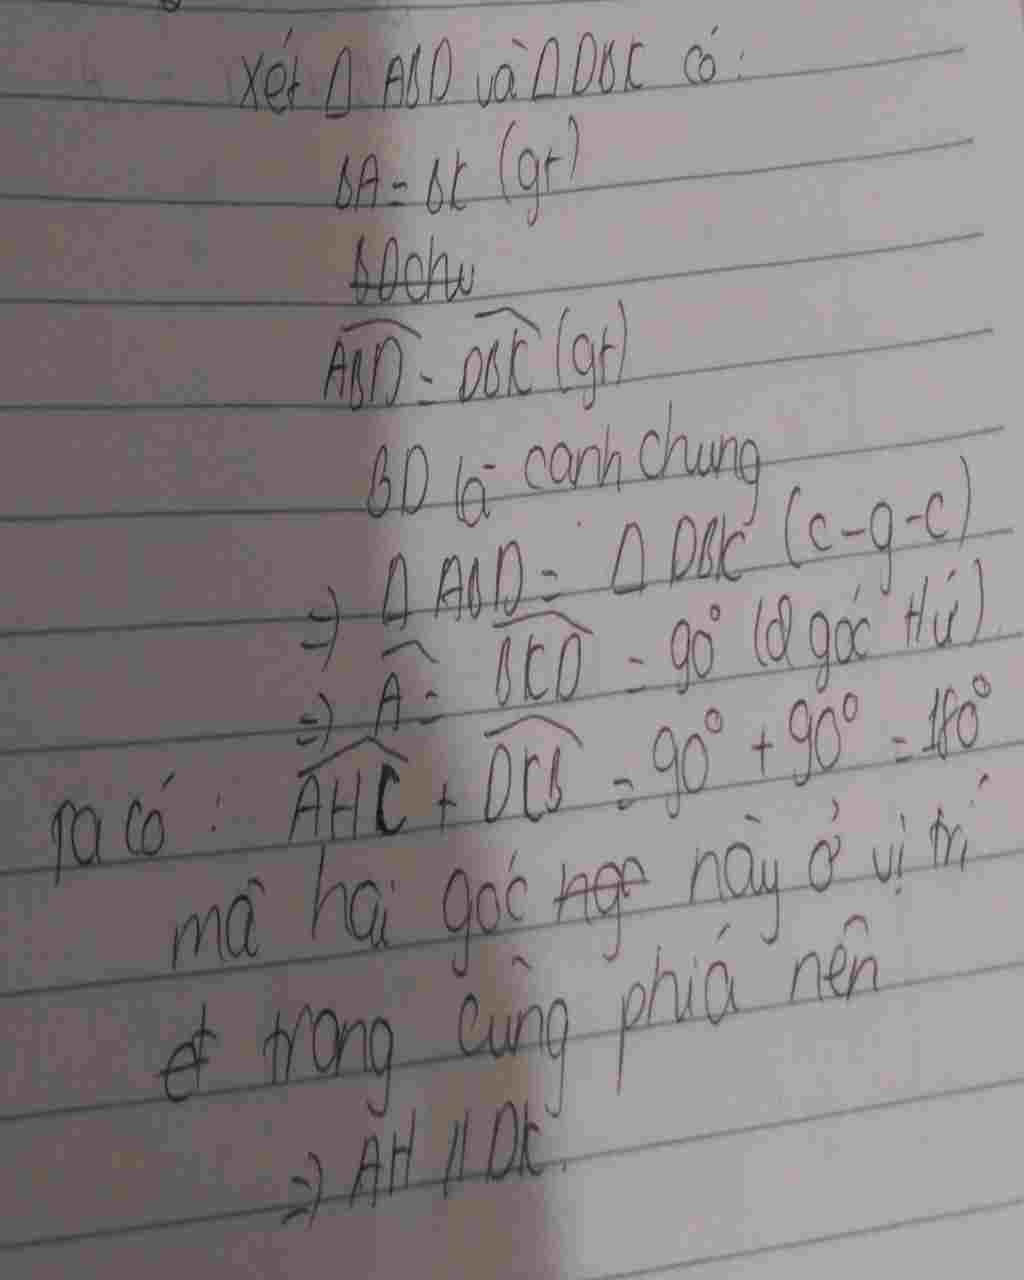 Xét Δ ABD và Δ DBK có:
BA = BK (gt)
BD chu
ABD = DBK (gt)
BD là cạnh chung
=> Δ ABD = Δ DBK (c-g-c)
=> A = BKD = 90° (2 góc tứ)
Ta có: AHC + DKB = 90° + 90° = 180°
mà hai góc này ở vị trí
trong cùng phía nên
=> AH // DK.